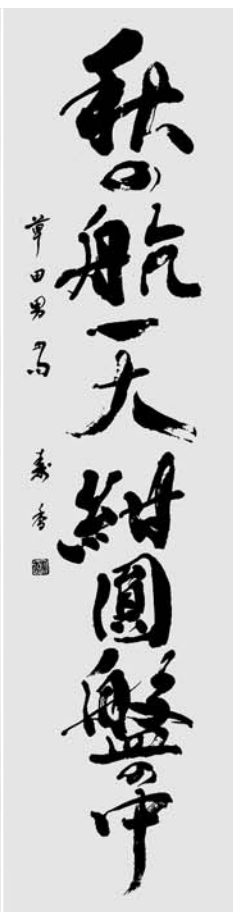 秋の航一大紺圓盤の中
草田男句 寿香